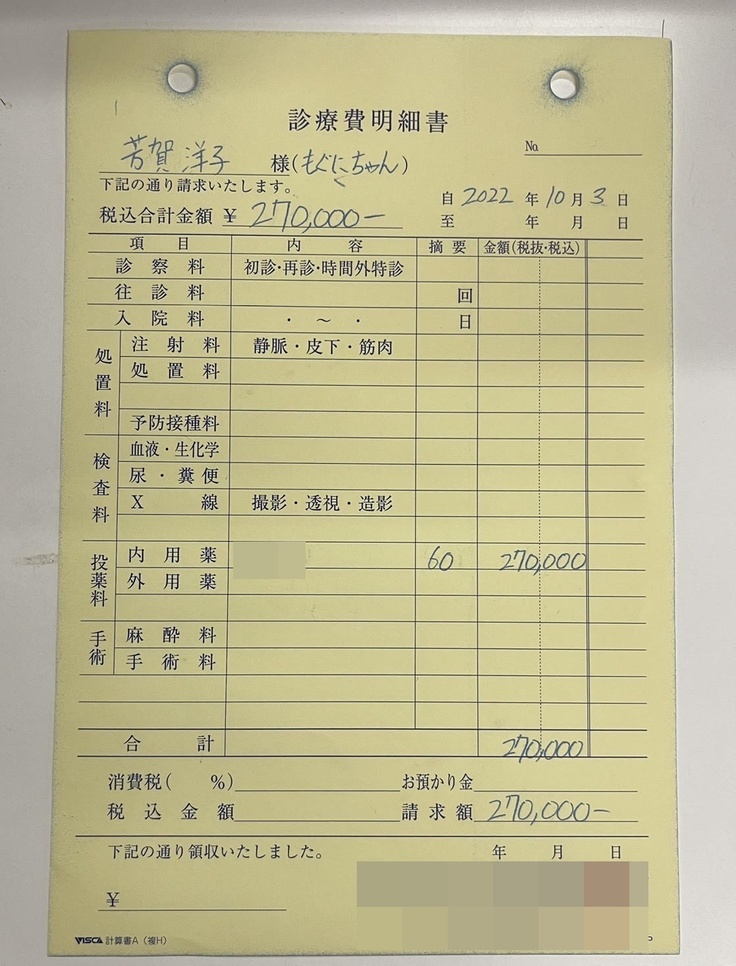 診療費明細書
芳賀 洋子 様(もぐにちゃん)
№
下記の通り請求いたします。
自 2022 年 10 月 3 日
税込合計金額 ¥ 270,000-
至 年 月 日
項目 内容 摘要 金額(税抜・税込)
診察料 初診・再診・時間外特診
往診料 回
入院料 ・ ～ ・ 日
処置料
注射料 静脈・皮下・筋肉
処置料
予防接種料
検査料
血液・生化学
尿・糞便
X線 撮影・透視・造影
投薬料
内用薬 60 270,000
外用薬
手術
麻酔料
手術料
合計 270,000
消費税( %) お預かり金
税込金額 請求額 270,000-
下記の通り領収いたしました。 年 月 日
¥
VISCA 計算書A（複H）